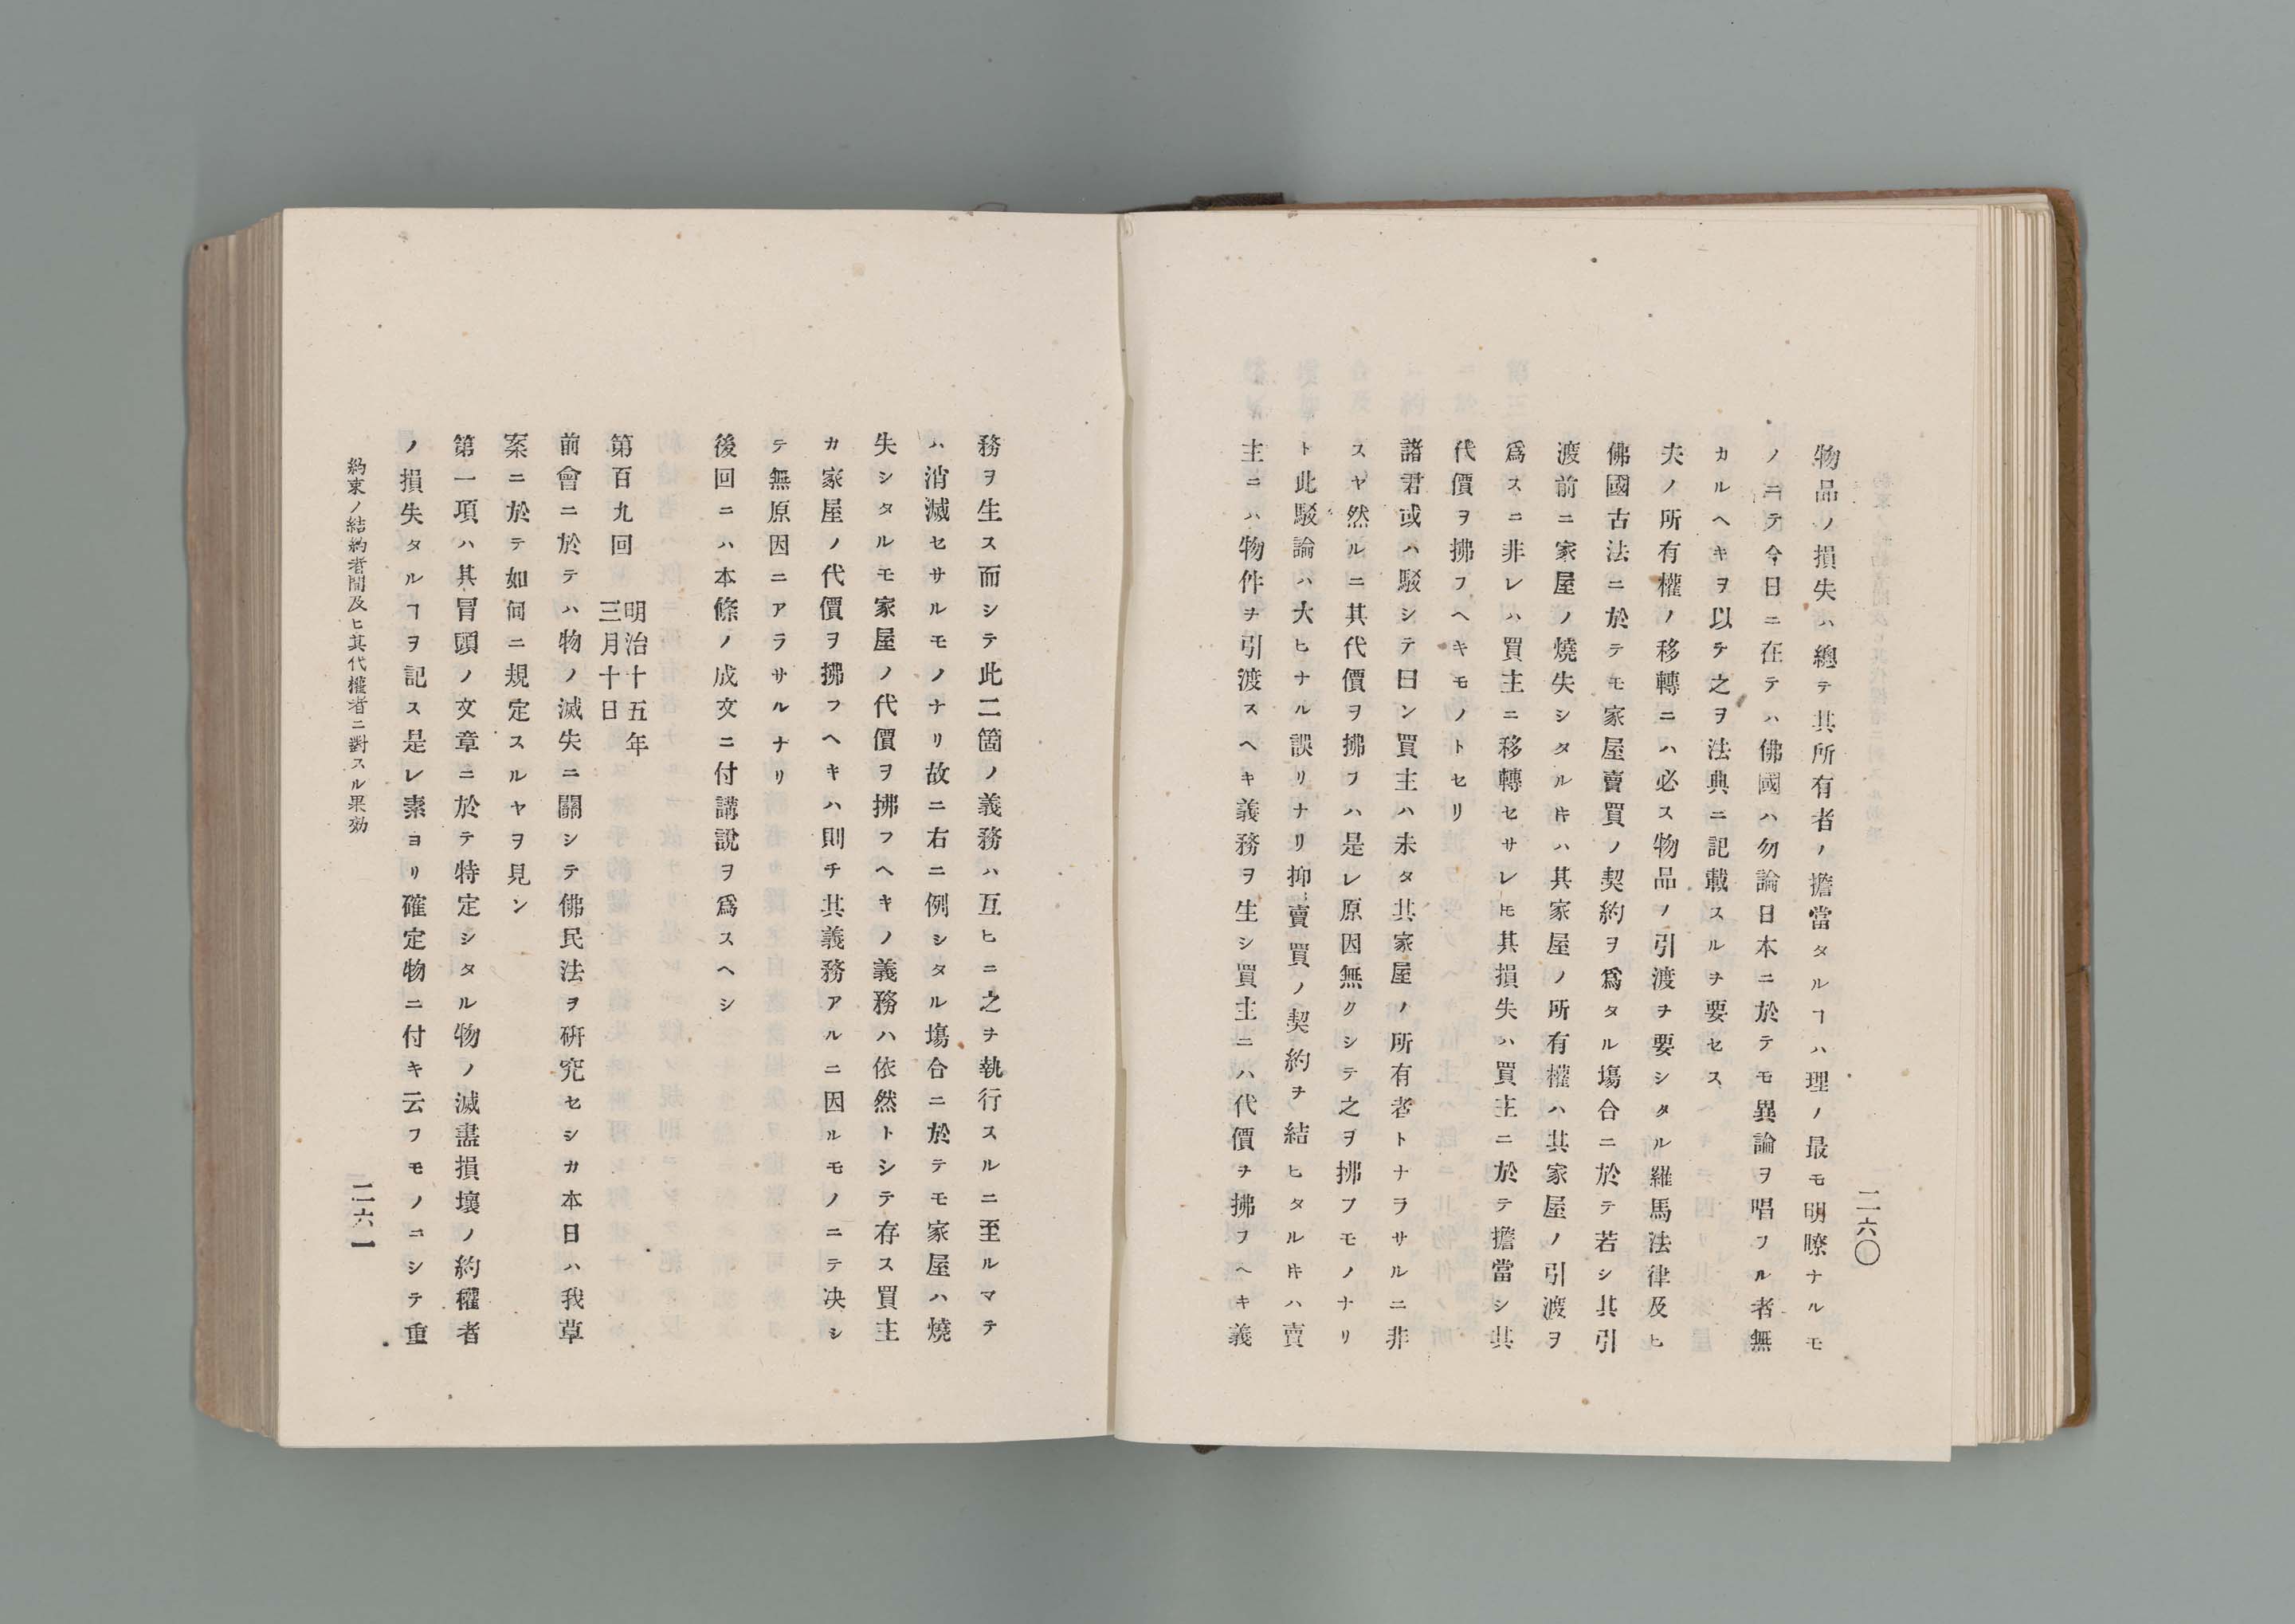 二六〇
物品ノ損失ハ總テ其所有者ノ擔當タルヿハ理ノ最モ明瞭ナルモ
ノニテ今日ニ在テハ佛國ハ勿論日本ニ於テモ異論ヲ唱フル者無
カルヘキヲ以テ之ヲ法典ニ記載スルヲ要セス
夫ノ所有權ノ移轉ニハ必ス物品ノ引渡ヲ要シタル羅馬法律及ヒ
佛國古法ニ於テモ家屋賣買ノ契約ヲ爲タル塲合ニ於テ若シ其引
渡前ニ家屋ノ燒失シタル𪜈ハ其家屋ノ所有權ハ其家屋ノ引渡ヲ
爲スニ非レハ買主ニ移轉セサレ𪜈其損失ハ買主ニ於テ擔當シ其
代價ヲ拂フヘキモノトセリ
諸君或ハ駁シテ曰ン買主ハ未タ其家屋ノ所有者トナラサルニ非
スヤ然ルニ其代價ヲ拂フハ是レ原因無クシテ之ヲ拂フモノナリ
ト此駁論ハ大ヒナル誤リナリ抑賣買ノ契約ヲ結ヒタル𪜈ハ賣
主ニハ物件ヲ引渡スヘキ義務ヲ生シ買主ニハ代價ヲ拂フヘキ義
務ヲ生ス而シテ此二箇ノ義務ハ互ヒニ之ヲ執行スルニ至ルマテ
ハ消滅セサルモノナリ故ニ右ニ例シタル塲合ニ於テモ家屋ハ燒
失シタルモ家屋ノ代價ヲ拂フヘキノ義務ハ依然トシテ存ス買主
カ家屋ノ代價ヲ拂フヘキハ則チ其義務アルニ因ルモノニテ决シ
テ無原因ニアラサルナリ
後回ニハ本條ノ成文ニ付講説ヲ爲スヘシ
第百九回
明治十五年
三月十日
前會ニ於テハ物ノ滅失ニ關シテ佛民法ヲ研究セシカ本日ハ我草
案ニ於テ如何ニ規定スルヤヲ見ン
第一項ハ其冒頭ノ文章ニ於テ特定シタル物ノ滅盡損壞ノ約權者
ノ損失タルヿヲ記ス是レ素ヨリ確定物ニ付キ云フモノニシテ重
約束ノ結約者間及ヒ其代權者ニ對スル果効
二六一